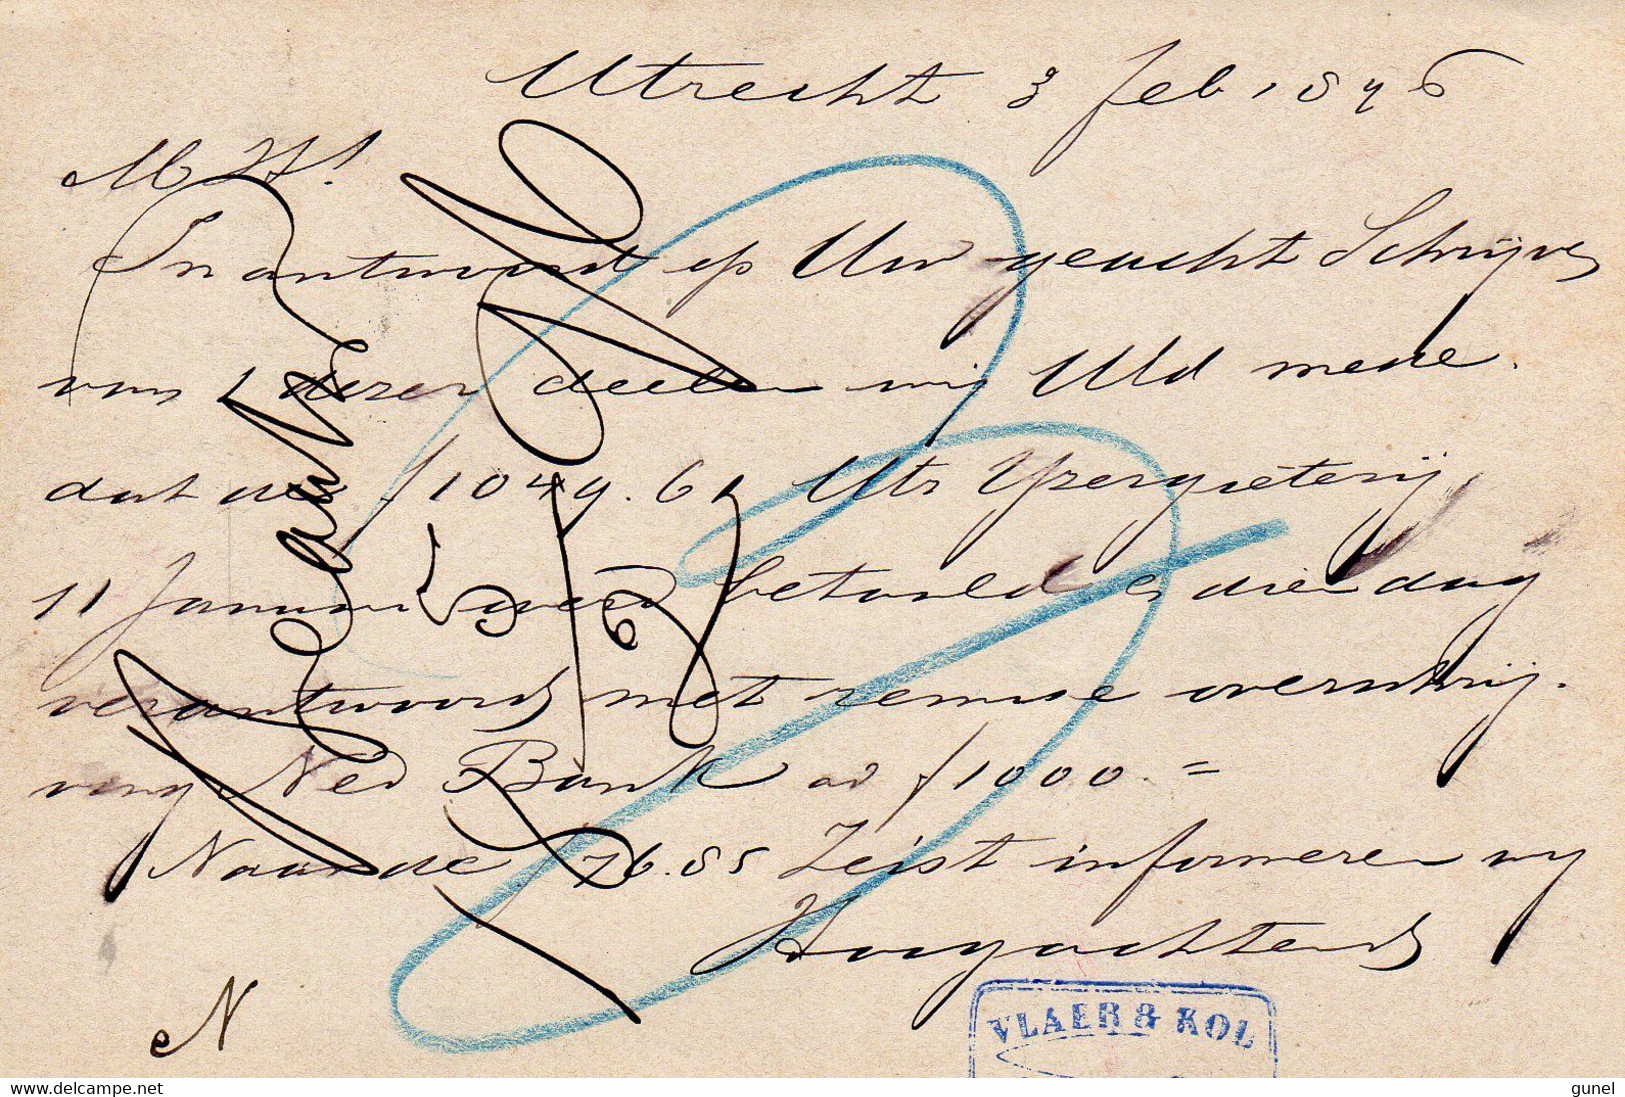 Utrecht 3 Feb 1876
M H!
In antwoord op Uw geacht Schrijven
van dezer deelen wij UEd mede
dat de f 1049.61 Utr Yzergieterij
11 Januari werd betaald & dien dag
verantwoord met remise overschrij-
ving Ned Bank ad f 1000.=
Naarde 76.85 Zeist informeren wy
Hoogachtend
N
VLAER & KOL
delcampe.net
gunel